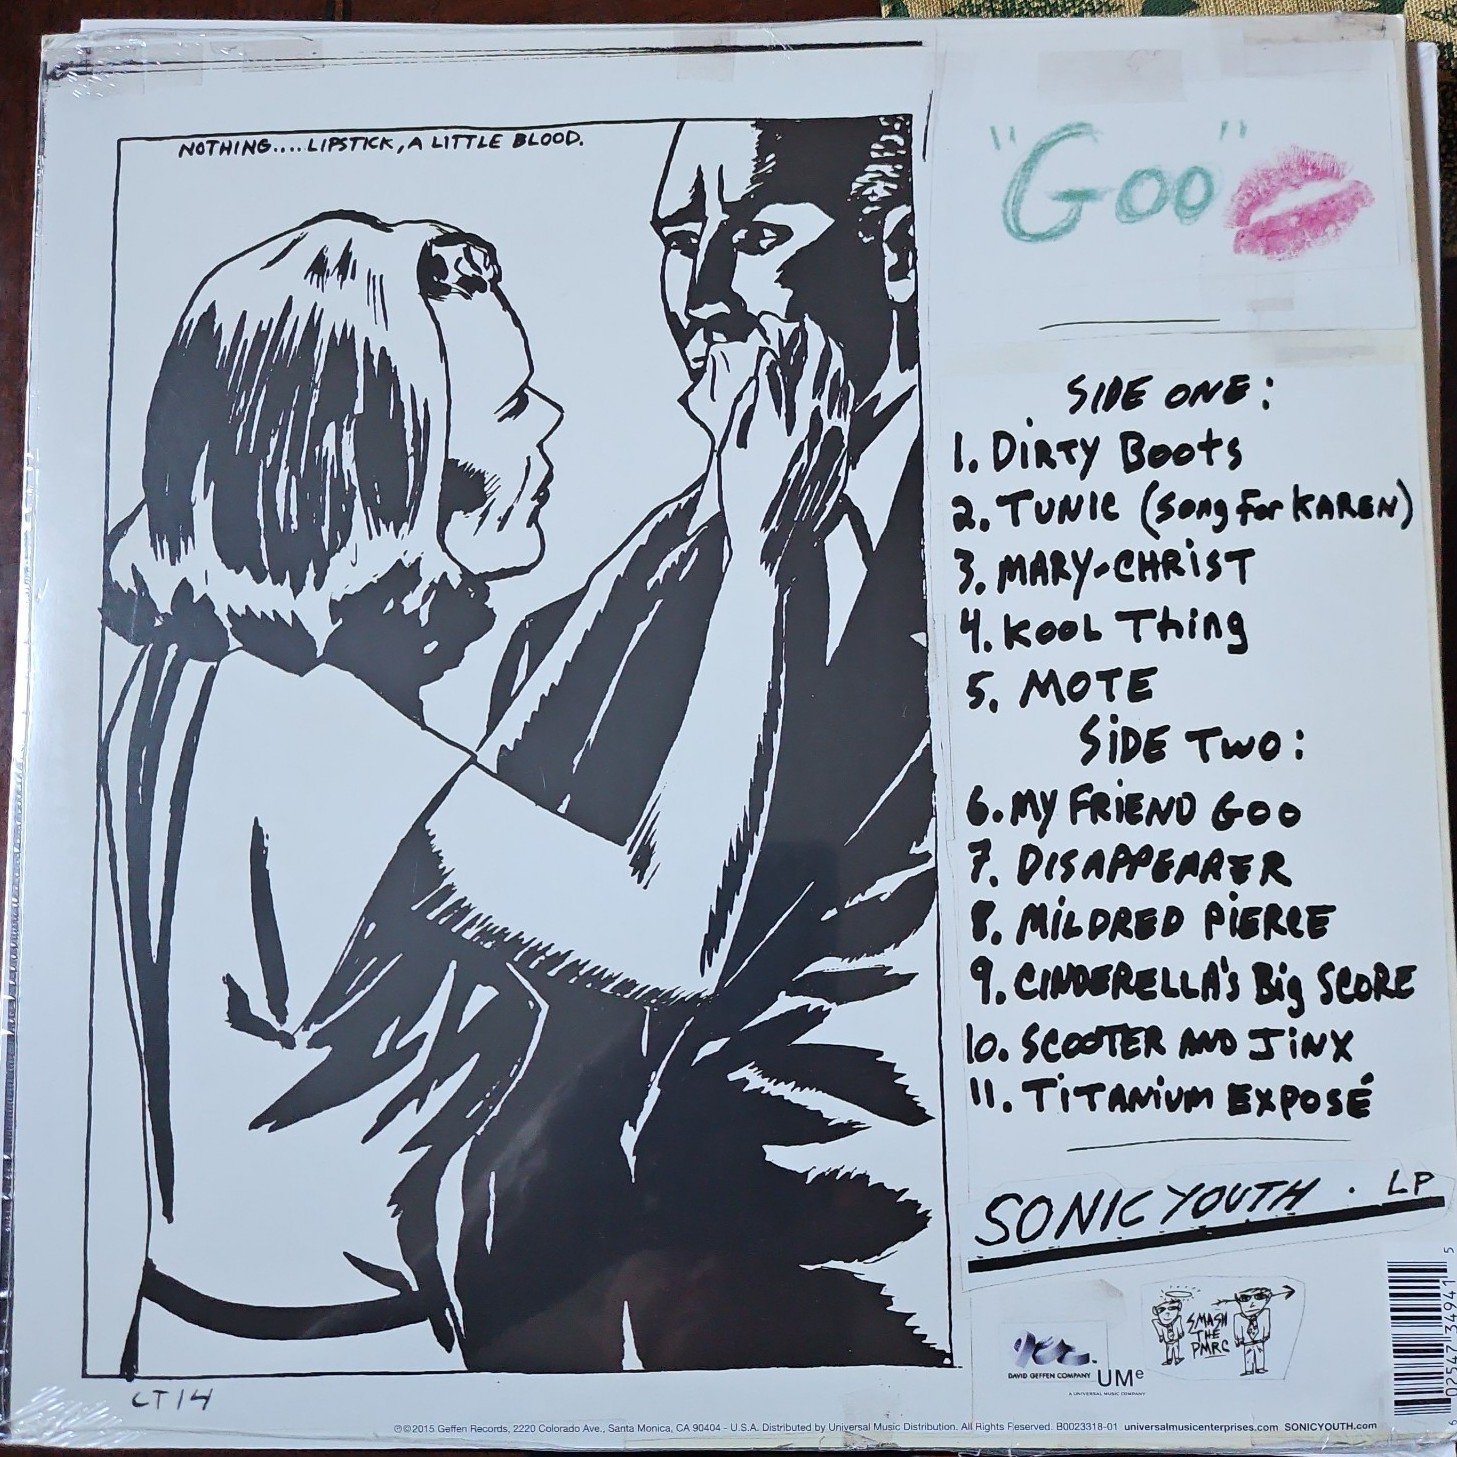 NOTHING....LIPSTICK, A LITTLE BLOOD.
"Goo"
SIDE ONE:
1. DIRTY BOOTS
2. TUNIC (Song For KAREN)
3. MARY-CHRIST
4. KOOL Thing
5. MOTE
SIDE TWO:
6. MY FRIEND GOO
7. DISAPPEARER
8. MILDRED PIERCE
9. CINDERELLA'S Big SCORE
10. SCOOTER AND JINX
11. TITANIUM EXPOSÉ
SONIC YOUTH . LP
SMASH
THE
PMRC
DAVID GEFFEN COMPANY
UMe
A UNIVERSAL MUSIC COMPANY
LT14
℗©2015 Geffen Records, 2220 Colorado Ave., Santa Monica, CA 90404 - U.S.A. Distributed by Universal Music Distribution. All Rights Reserved. B0023318-01 universalmusicenterprises.com SONICYOUTH.com
6 02547 34941 5